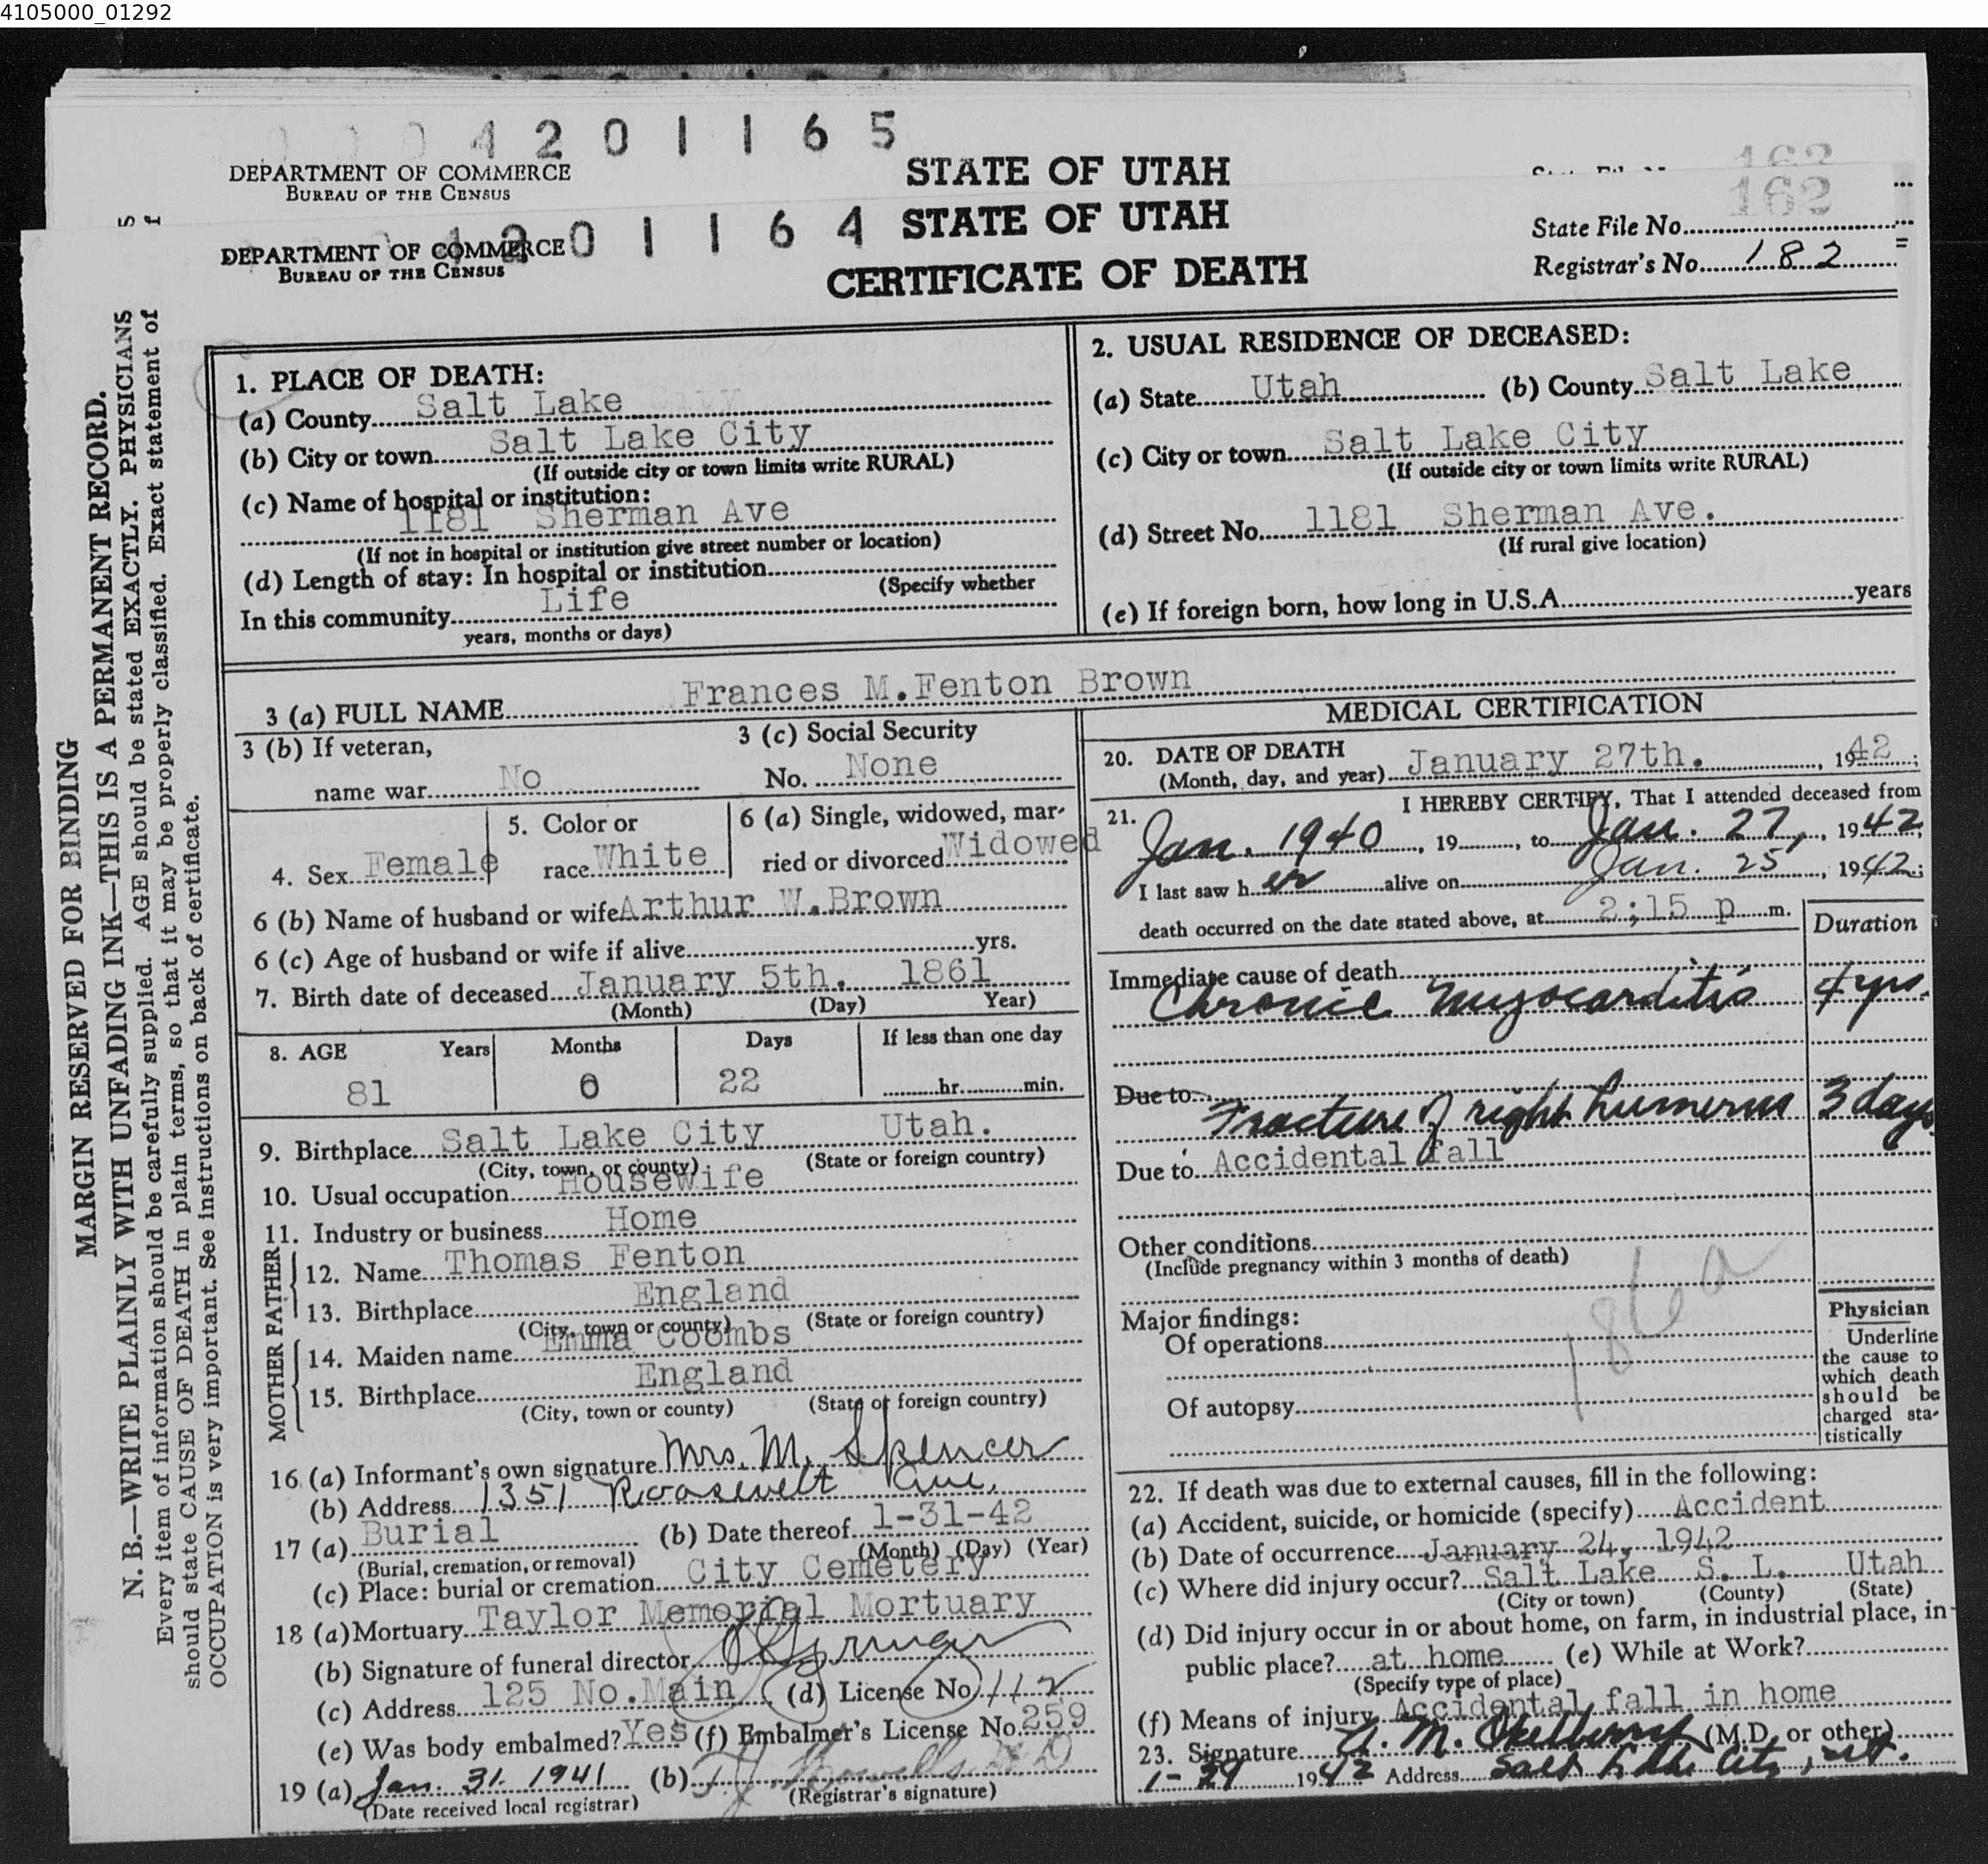 4105000_01292
4 2 0 1 1 6 5
DEPARTMENT OF COMMERCE
BUREAU OF THE CENSUS
STATE OF UTAH
162
DEPARTMENT OF COMMERCE
BUREAU OF THE CENSUS
4 2 0 1 1 6 4
STATE OF UTAH
CERTIFICATE OF DEATH
State File No. 162
Registrar's No. 182
MARGIN RESERVED FOR BINDING
N. B.—WRITE PLAINLY WITH UNFADING INK—THIS IS A PERMANENT RECORD.
Every item of information should be carefully supplied. AGE should be stated EXACTLY. PHYSICIANS
should state CAUSE OF DEATH in plain terms, so that it may be properly classified. Exact statement of
OCCUPATION is very important. See instructions on back of certificate.
1. PLACE OF DEATH:
(a) County Salt Lake
(b) City or town Salt Lake City
(If outside city or town limits write RURAL)
(c) Name of hospital or institution:
1181 Sherman Ave
(If not in hospital or institution give street number or location)
(d) Length of stay: In hospital or institution
(Specify whether
In this community Life
years, months or days)
2. USUAL RESIDENCE OF DECEASED:
(a) State Utah (b) County Salt Lake
(c) City or town Salt Lake City
(If outside city or town limits write RURAL)
(d) Street No. 1181 Sherman Ave.
(If rural give location)
(e) If foreign born, how long in U.S.A. years
3 (a) FULL NAME Frances M. Fenton Brown
3 (b) If veteran,
name war No
3 (c) Social Security
No. None
4. Sex Female
5. Color or
race White
6 (a) Single, widowed, mar-
ried or divorced Widowed
6 (b) Name of husband or wife Arthur W. Brown
6 (c) Age of husband or wife if alive yrs.
7. Birth date of deceased January 5th. 1861
(Month) (Day) Year)
8. AGE Years Months Days If less than one day
81 0 22 hr. min.
9. Birthplace Salt Lake City Utah.
(City, town, or county) (State or foreign country)
10. Usual occupation Housewife
11. Industry or business Home
FATHER
12. Name Thomas Fenton
13. Birthplace England
(City, town or county) (State or foreign country)
MOTHER
14. Maiden name Emma Coombs
15. Birthplace England
(City, town or county) (State or foreign country)
16 (a) Informant's own signature Mrs. M. Spencer
(b) Address 1351 Roosevelt Ave.
17 (a) Burial (b) Date thereof 1-31-42
(Burial, cremation, or removal) (Month) (Day) (Year)
(c) Place: burial or cremation City Cemetery
18 (a) Mortuary Taylor Memorial Mortuary
(b) Signature of funeral director
(c) Address 125 No. Main (d) License No. 112
(e) Was body embalmed? Yes (f) Embalmer's License No. 259
19 (a) Jan. 31. 1941 (b)
(Date received local registrar) (Registrar's signature)
MEDICAL CERTIFICATION
20. DATE OF DEATH
(Month, day, and year) January 27th. , 1942;
21. I HEREBY CERTIFY, That I attended deceased from
Jan. 1940, 19 , to Jan. 27, , 1942,
I last saw her alive on Jan. 25, 1942;
death occurred on the date stated above, at 2;15 p m.
Duration
Immediate cause of death
Chronic Myocarditis 4 yrs.
Due to
Fracture of right humerus 3 days
Due to Accidental fall
Other conditions
(Include pregnancy within 3 months of death)
186 a
Major findings:
Of operations
Of autopsy
Physician
Underline
the cause to
which death
should be
charged sta-
tistically
22. If death was due to external causes, fill in the following:
(a) Accident, suicide, or homicide (specify) Accident
(b) Date of occurrence January 24, 1942
(c) Where did injury occur? Salt Lake S. L. Utah
(City or town) (County) (State)
(d) Did injury occur in or about home, on farm, in industrial place, in
public place? at home (e) While at Work?
(Specify type of place)
(f) Means of injury Accidental fall in home
23. Signature A. M. (M.D. or other)
1-29 1942 Address Salt Lake City, Ut.